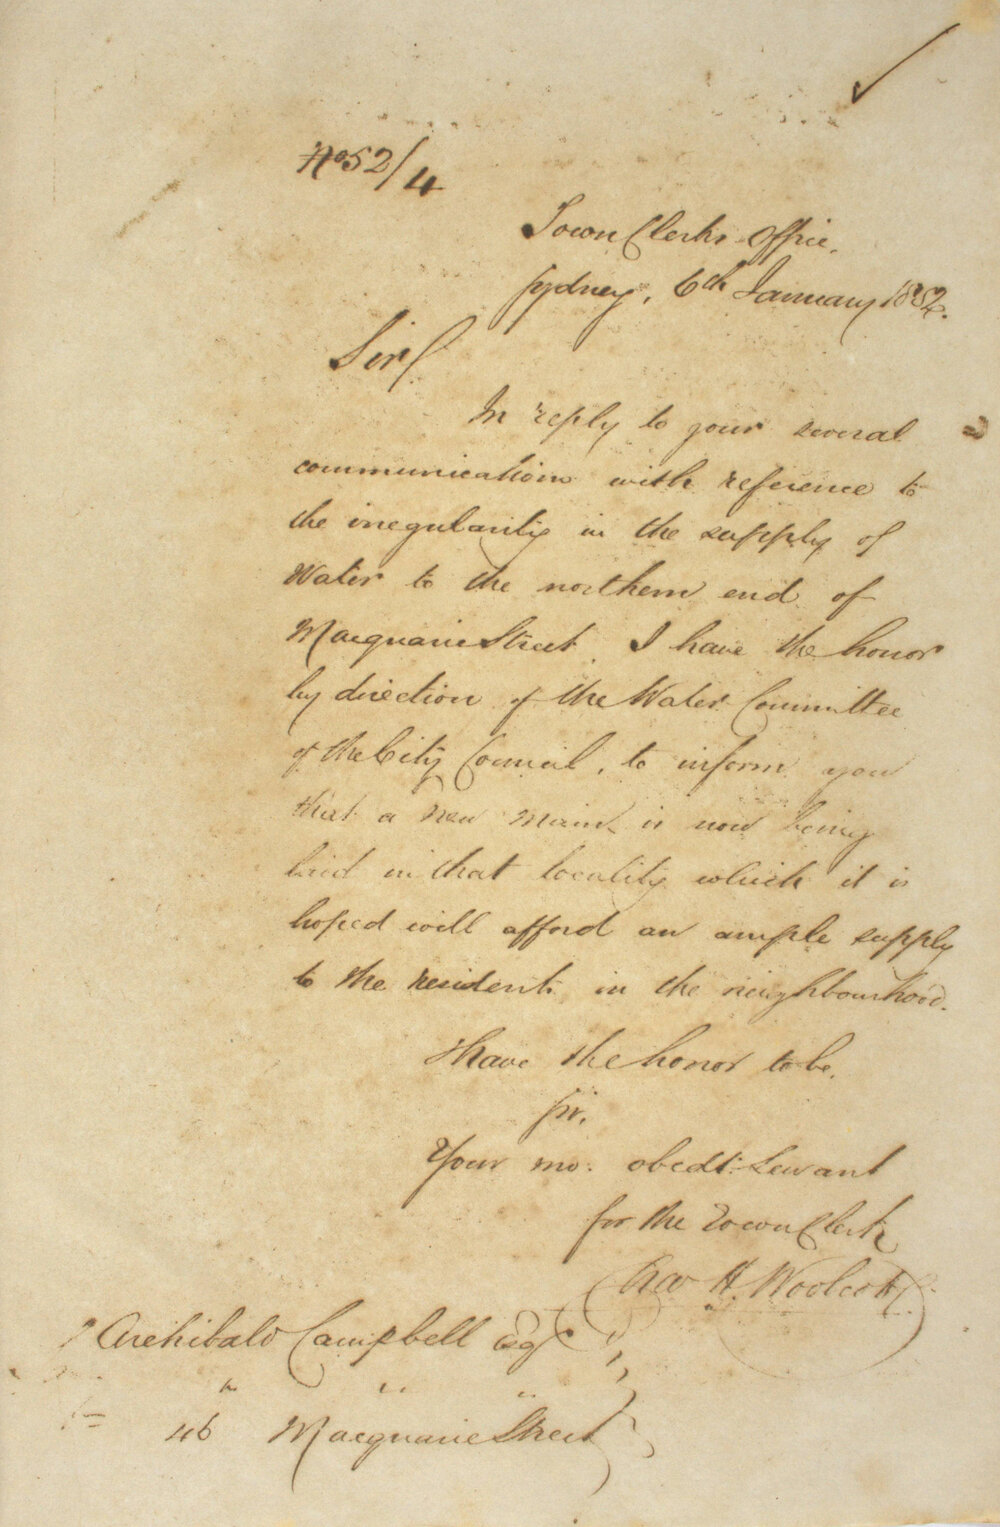 No 52/4
Town Clerks Office.
Sydney, 6th January 1852.
Sir
In reply to your several
communications with reference to
the iregularity in the supply of
Water to the northern end of
Macquarie Street. I have the honor
by direction of the Water Committee
of the City Council, to inform you
that a new main is now being
laid in that locality which it is
hoped will afford an ample supply
to the residents in the neighbourhood.
I have the honor to be.
Sir.
Your mo: obedt: Servant
for the Town Clerk
H. Woolcott
Archibald Campbell Esqr
46 Macquarie Street